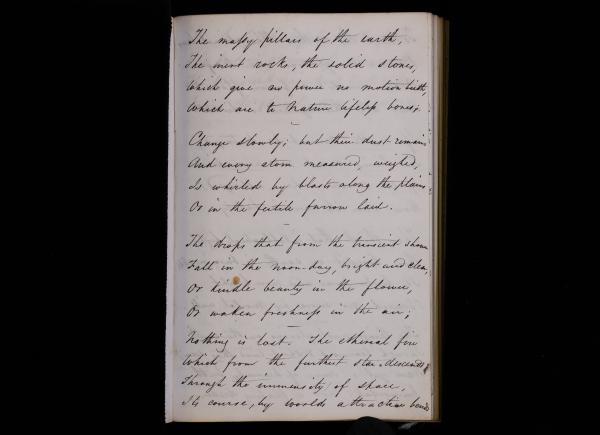 The massy pillars of the earth,
The inert rocks, the solid stones,
Which give no power no motion birth,
Which are to Nature lifeless bones;
Change slowly; but their dust remains
And every atom measured, weighed,
Is whirled by blasts along the plains
Or in the fertile furrow laid.
The drops that from the transient shower
Fall in the noon-day, bright and clear,
Or kindle beauty in the flower,
Or waken freshness in the air;
Nothing is lost. The etherial fire
Which from the furthest star descends
Through the immensity of space,
Its course, by worlds attraction bends